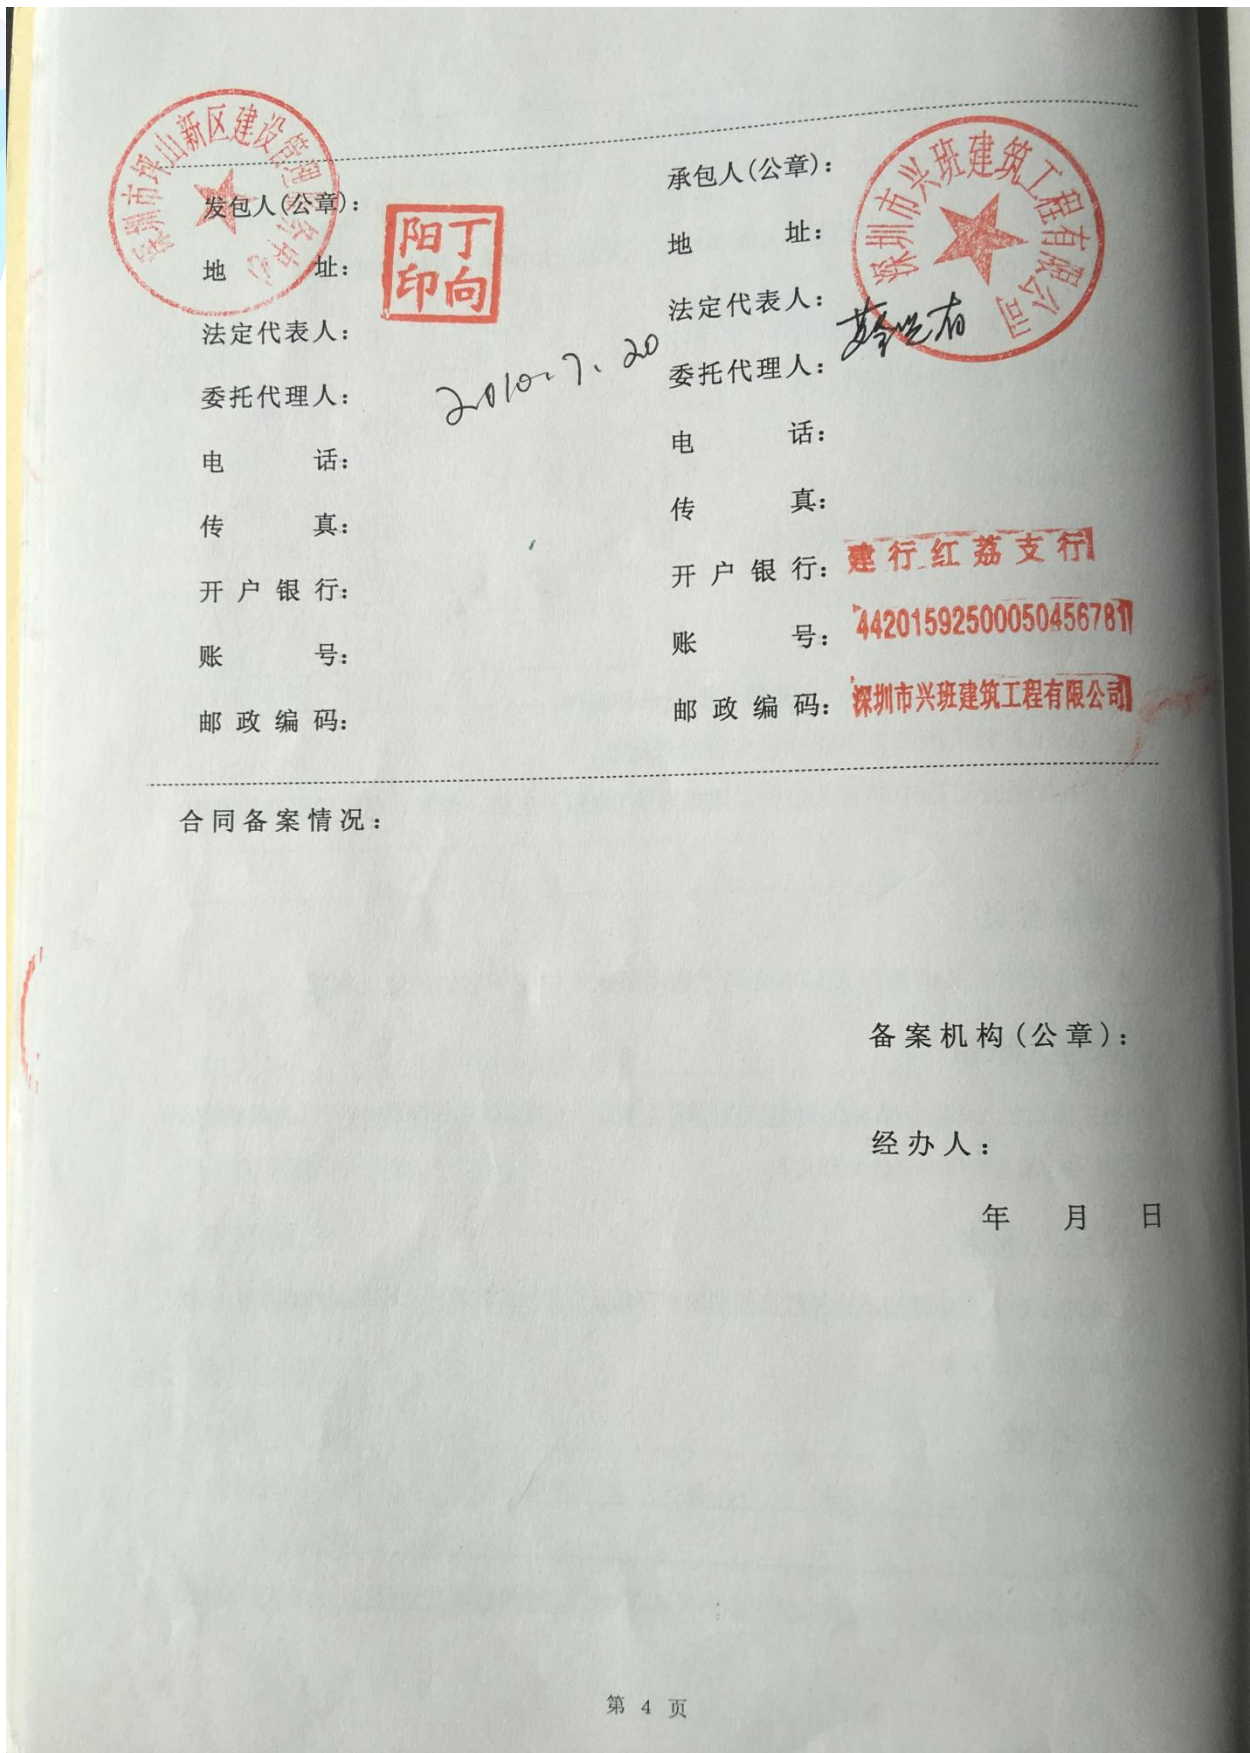 深圳市坪山新区建设管理服务中心
发包人(公章):
地 址:
法定代表人:
委托代理人:
电 话:
传 真:
开户银行:
账 号:
邮政编码:
丁向
阳印
2010.7.20
深圳市兴班建筑工程有限公司
承包人(公章):
地 址:
法定代表人:
委托代理人:
电 话:
传 真:
开户银行: 建行红荔支行
账 号: 44201592500050456781
邮政编码: 深圳市兴班建筑工程有限公司
合同备案情况:
备案机构(公章):
经办人:
年 月 日
第 4 页